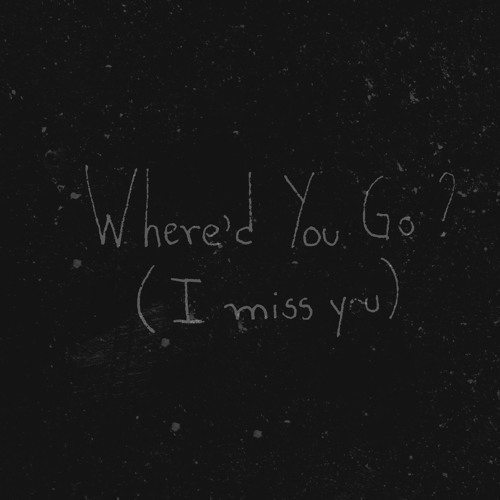 Where'd You Go?
(I miss you)